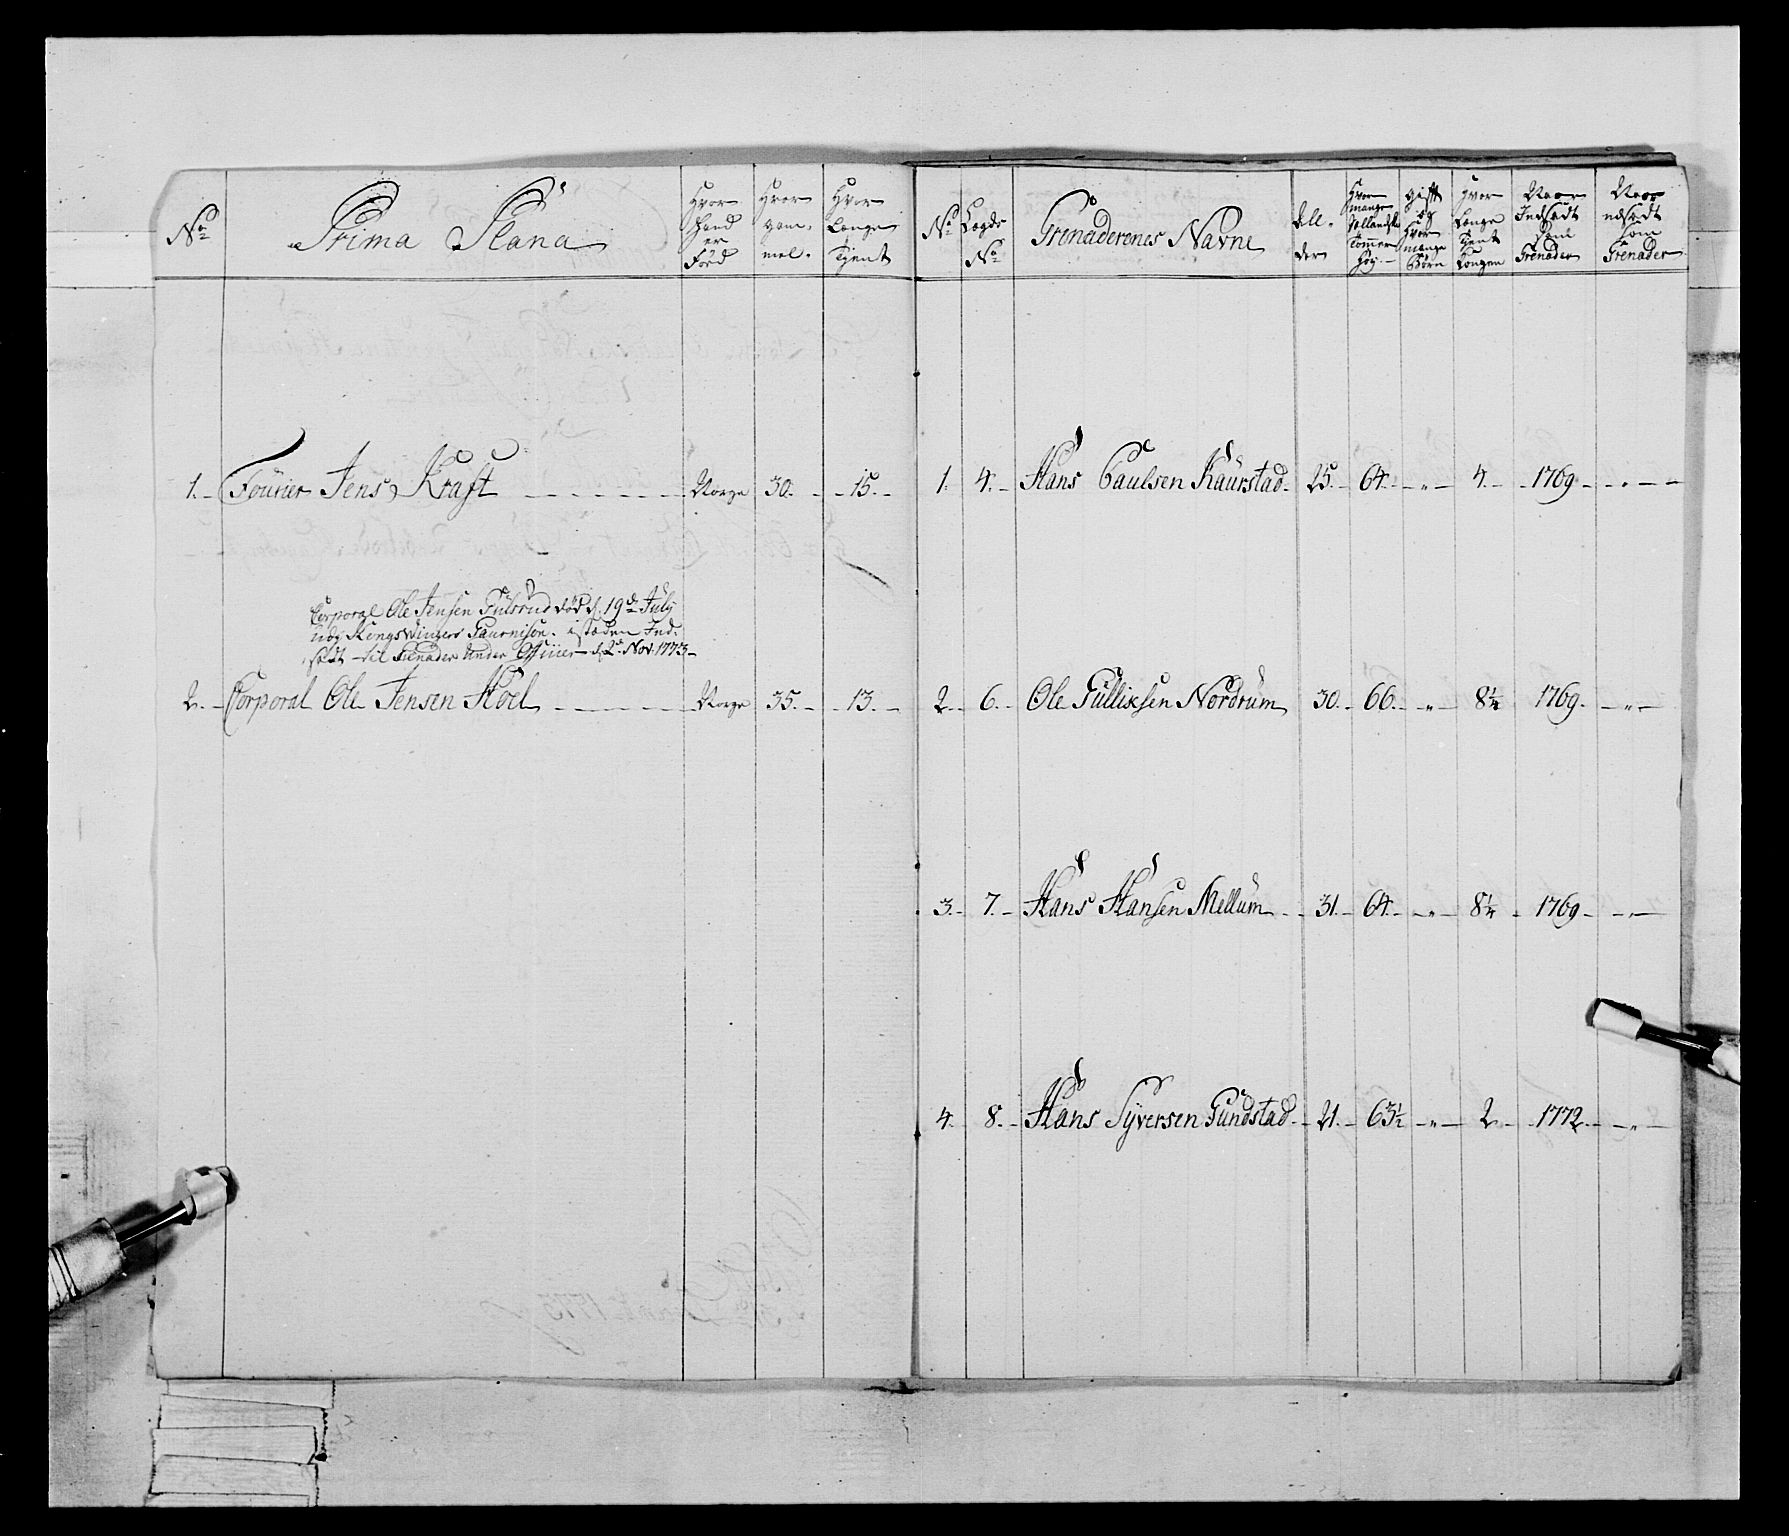 No Prima Plana Hvor Land er Föed Hvor gam- mel. Hvor Længe Tient
1. Fourier Jens Kraft Norge 30. 15.
Corporal Ole Jensen Gulsrud död d. 19de July
udj Kongswingers Gaurnison. istæden Ind-
sadt til Grenader Under Officier d. 2de Nov: 1773
2. Corporal Ole Jensen Höel Norge 35. 13.
No Lægds No Grenaderenes Navne All- der Hvor mange Hollandske Tommer höy. Gift og Hvor mange Börn Hvor Længe Tient Kongen Naar Indsadt som Grenader Naar udsadt som Grenader
1. 4. Hans Paulsen Kaurstad 25. 64. " 4. 1769. "
2. 6. Ole Gulliksen Nordrum 30. 66. " 8¼ 1769. "
3. 7. Hans Hansen Mellum 31. 64. " 8¼ 1769 "
4. 8. Hans Syversen Gundstad 21. 63½ " 2 1772. "